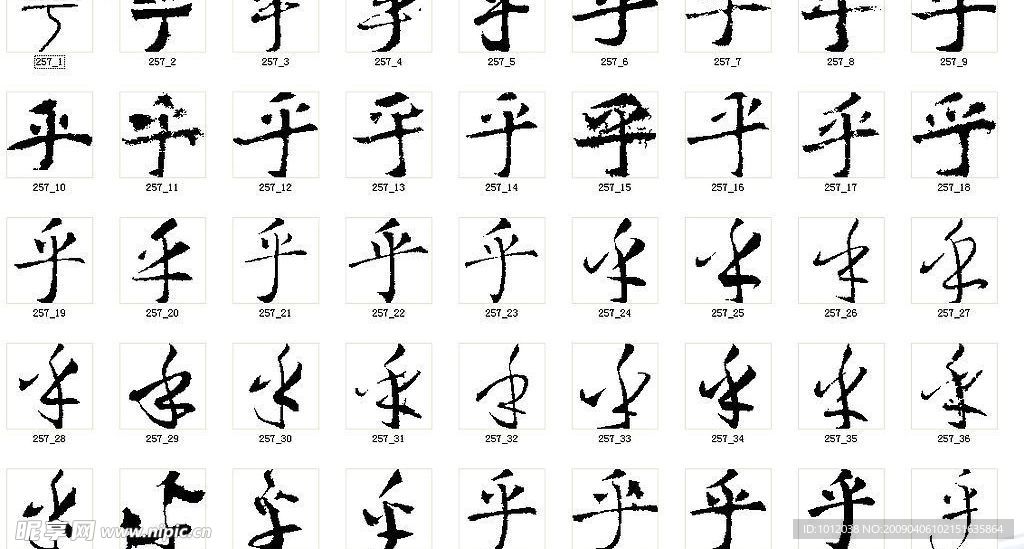 乎 乎 乎 乎 乎 乎 乎 乎 乎
257_1 257_2 257_3 257_4 257_5 257_6 257_7 257_8 257_9
乎 乎 乎 乎 乎 乎 乎 乎 乎
257_10 257_11 257_12 257_13 257_14 257_15 257_16 257_17 257_18
乎 乎 乎 乎 乎 乎 乎 乎 乎
257_19 257_20 257_21 257_22 257_23 257_24 257_25 257_26 257_27
乎 乎 乎 乎 乎 乎 乎 乎 乎
257_28 257_29 257_30 257_31 257_32 257_33 257_34 257_35 257_36
乎 乎 乎 乎 乎 乎 乎 乎 乎
昵享网 www.nipic.cn
ID:1012038 NO:20090406102151635864